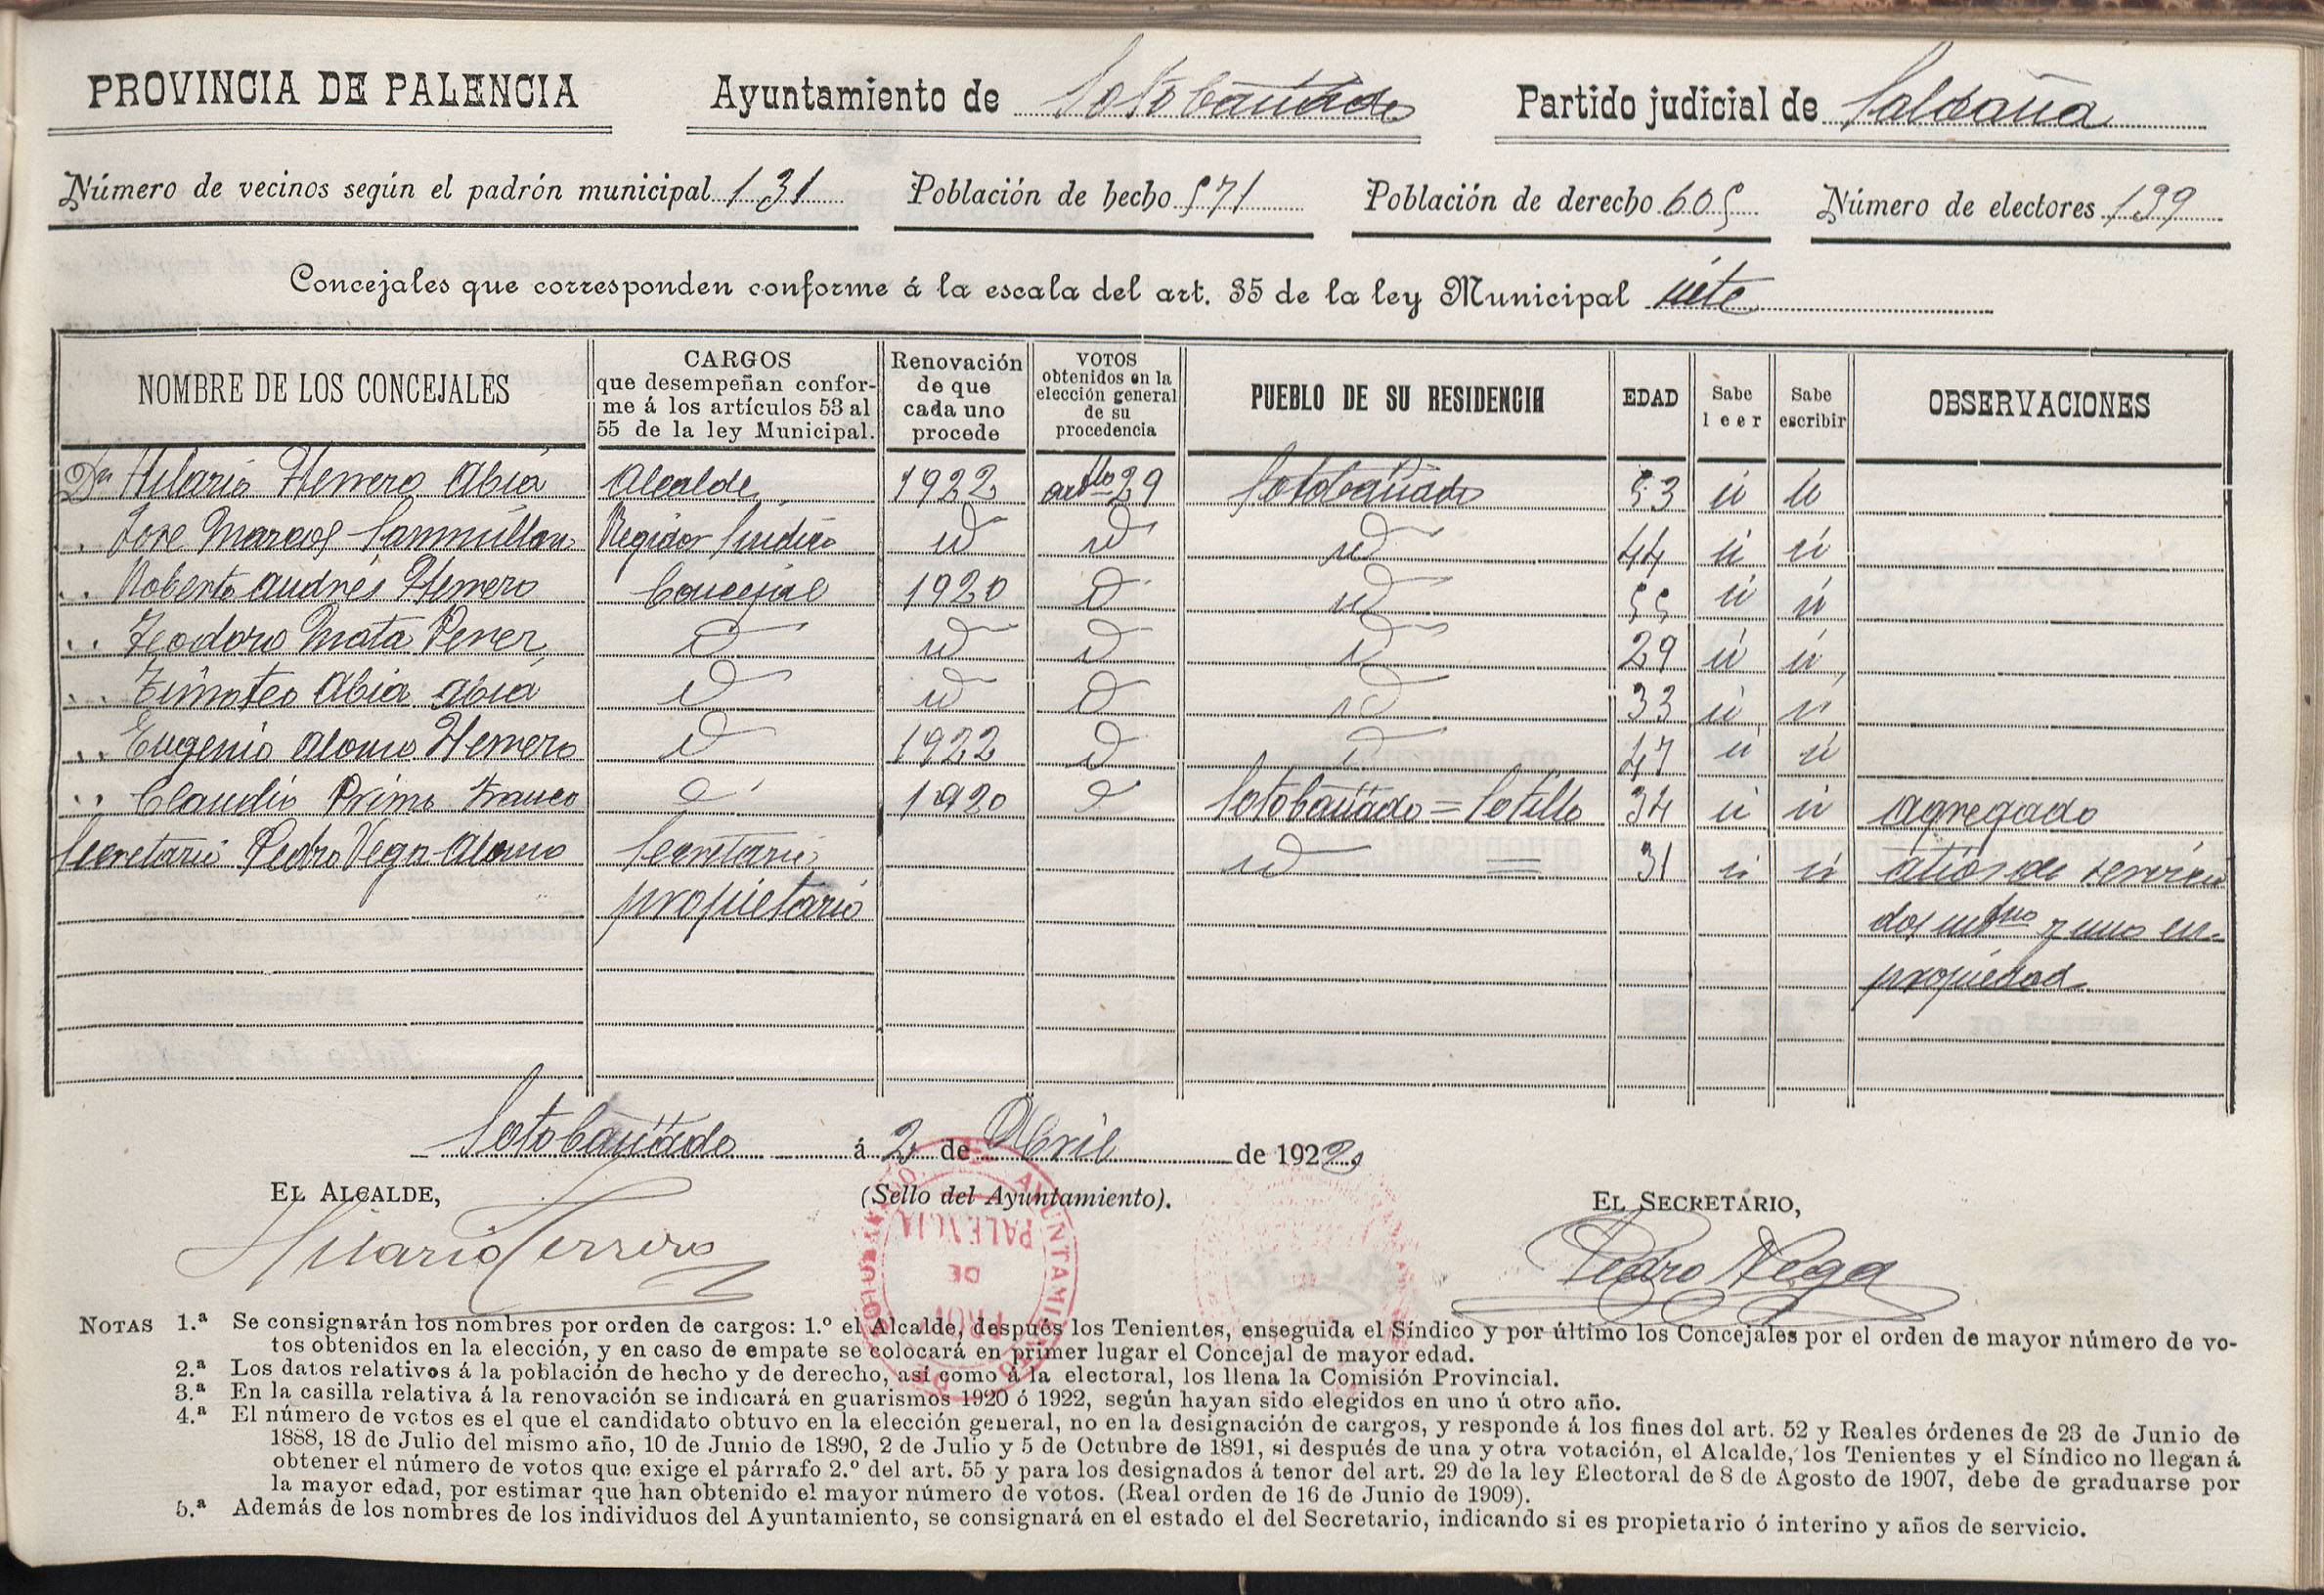 PROVINCIA DE PALENCIA Ayuntamiento de Sotobañado Partido judicial de Saldaña
Número de vecinos según el padrón municipal 131 Población de hecho 571 Población de derecho 605 Número de electores 139
Concejales que corresponden conforme á la escala del art. 35 de la ley Municipal siete
NOMBRE DE LOS CONCEJALES
CARGOS
que desempeñan confor-
me á los artículos 53 al
55 de la ley Municipal.
Renovación
de que
cada uno
procede
VOTOS
obtenidos en la
elección general
de su
procedencia
PUEBLO DE SU RESIDENCIA
EDAD
Sabe
leer
Sabe
escribir
OBSERVACIONES
Dn Hilario Herrero Abia Alcalde 1922 artlo 29 Sotobañado 53 si si
.. Jose Marcos Sanmillan Regidor Sindico id id id 44 si si
.. Roberto Andrés Herrero Concejal 1920 id id 55 si si
.. Teodoro Mata Perez id id id id 29 si si
.. Timoteo Abia Abia id id id id 33 si si
.. Eugenio Alonso Herrero id 1922 id id 47 si si
.. Claudio Primo Franco id 1920 id Sotobañado = Sotillo 34 si si agregado
Secretario Pedro Vega Alonso Secretario id = 31 si si años de servicio
propietario dos y uno en
propiedad
Sotobañado á 2 de Abril de 1922
EL ALCALDE, (Sello del Ayuntamiento). EL SECRETARIO,
Hilario Herrero Pedro Vega
AYUNTAMIENTO
PROV
DE
PALENCIA
NOTAS 1.ª Se consignarán los nombres por orden de cargos: 1.º el Alcalde, después los Tenientes, enseguida el Síndico y por último los Concejales por el orden de mayor número de vo-
tos obtenidos en la elección, y en caso de empate se colocará en primer lugar el Concejal de mayor edad.
2.ª Los datos relativos á la población de hecho y de derecho, así como á la electoral, los llena la Comisión Provincial.
3.ª En la casilla relativa á la renovación se indicará en guarismos 1920 ó 1922, según hayan sido elegidos en uno ú otro año.
4.ª El número de votos es el que el candidato obtuvo en la elección general, no en la designación de cargos, y responde á los fines del art. 52 y Reales órdenes de 23 de Junio de
1888, 18 de Julio del mismo año, 10 de Junio de 1890, 2 de Julio y 5 de Octubre de 1891, si después de una y otra votación, el Alcalde, los Tenientes y el Síndico no llegan á
obtener el número de votos que exige el párrafo 2.º del art. 55 y para los designados á tenor del art. 29 de la ley Electoral de 8 de Agosto de 1907, debe de graduarse por
la mayor edad, por estimar que han obtenido el mayor número de votos. (Real orden de 16 de Junio de 1909).
5.ª Además de los nombres de los individuos del Ayuntamiento, se consignará en el estado el del Secretario, indicando si es propietario ó interino y años de servicio.